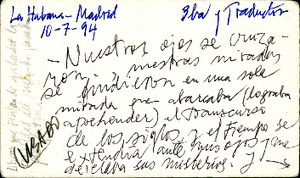 La Habana - Madrid
10-7-94
Eba y Traductor
- Nuestros ojos se cruza-
ron. nuestras miradas
se fundieron en una sola
mirada que abarcaba (lograba
aprehender) el transcurso
de los siglos y el tiempo se
extendía ante mis ojos y me
develaba sus misterios. y
USADO